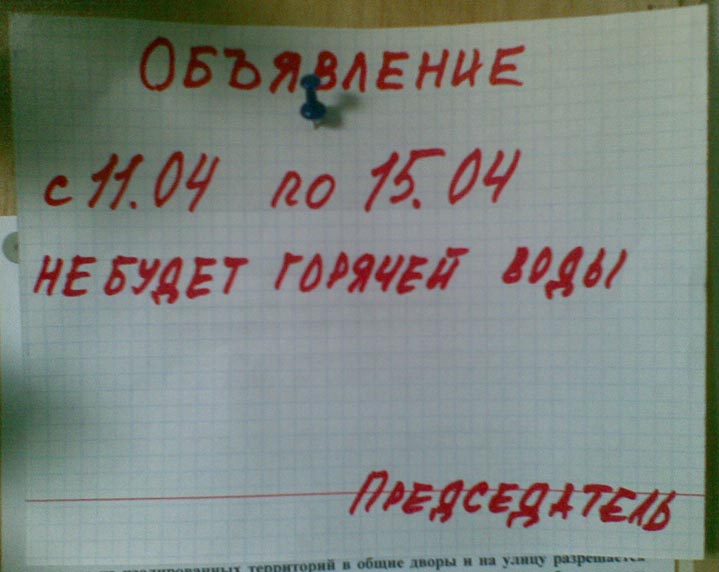 ОБЪЯВЛЕНИЕ
с 11.04 по 15.04
НЕ БУДЕТ ГОРЯЧЕЙ ВОДЫ
ПРЕДСЕДАТЕЛЬ
территорий в общие дворы и на улицу разрешается